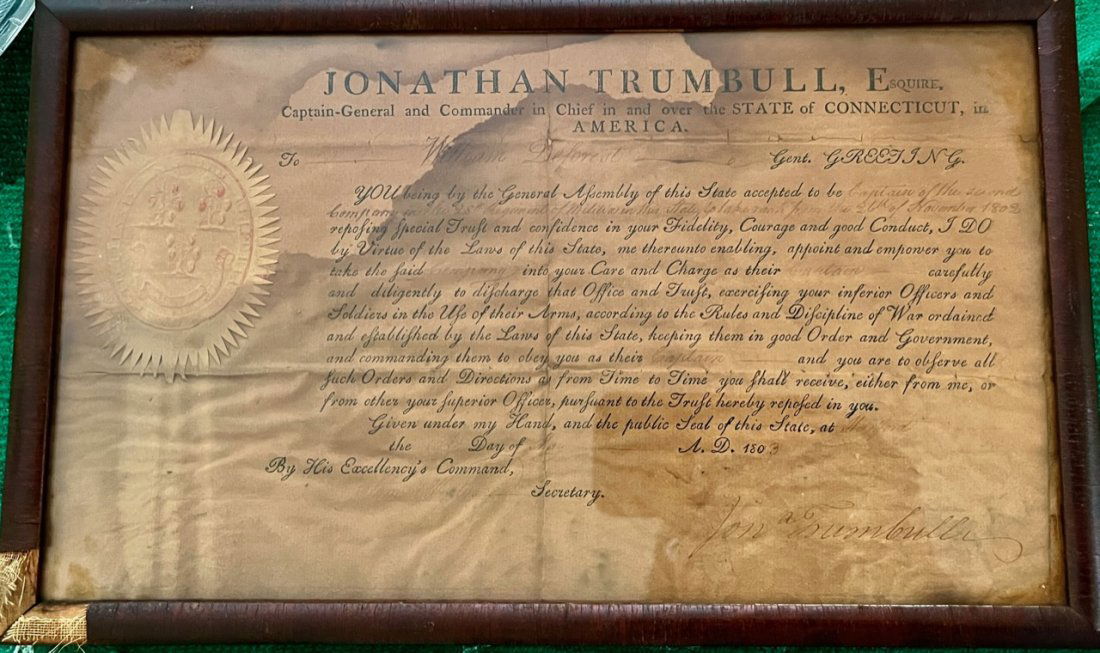 JONATHAN TRUMBULL, ESQUIRE,
Captain-General and Commander in Chief in and over the STATE of CONNECTICUT, in
AMERICA.
To William Deforest Gent. GREETING.
YOU being by the General Assembly of this State accepted to be Captain of the second
Company in the Regiment of Militia in this State, to take rank from the of November 1802
reposing special Trust and confidence in your Fidelity, Courage and good Conduct, I DO
by Virtue of the Laws of this State, me thereunto enabling, appoint and empower you to
take the said Company into your Care and Charge as their Captain carefully
and diligently to discharge that Office and Trust, exercising your inferior Officers and
Soldiers in the Use of their Arms, according to the Rules and Discipline of War ordained
and established by the Laws of this State, keeping them in good Order and Government,
and commanding them to obey you as their Captain and you are to observe all
such Orders and Directions as from Time to Time you shall receive, either from me, or
from other your superior Officer, pursuant to the Trust hereby reposed in you.
Given under my Hand, and the public Seal of this State, at Hartford
the Day of A. D. 1803
By His Excellency's Command,
Secretary.
Jonª Trumbull